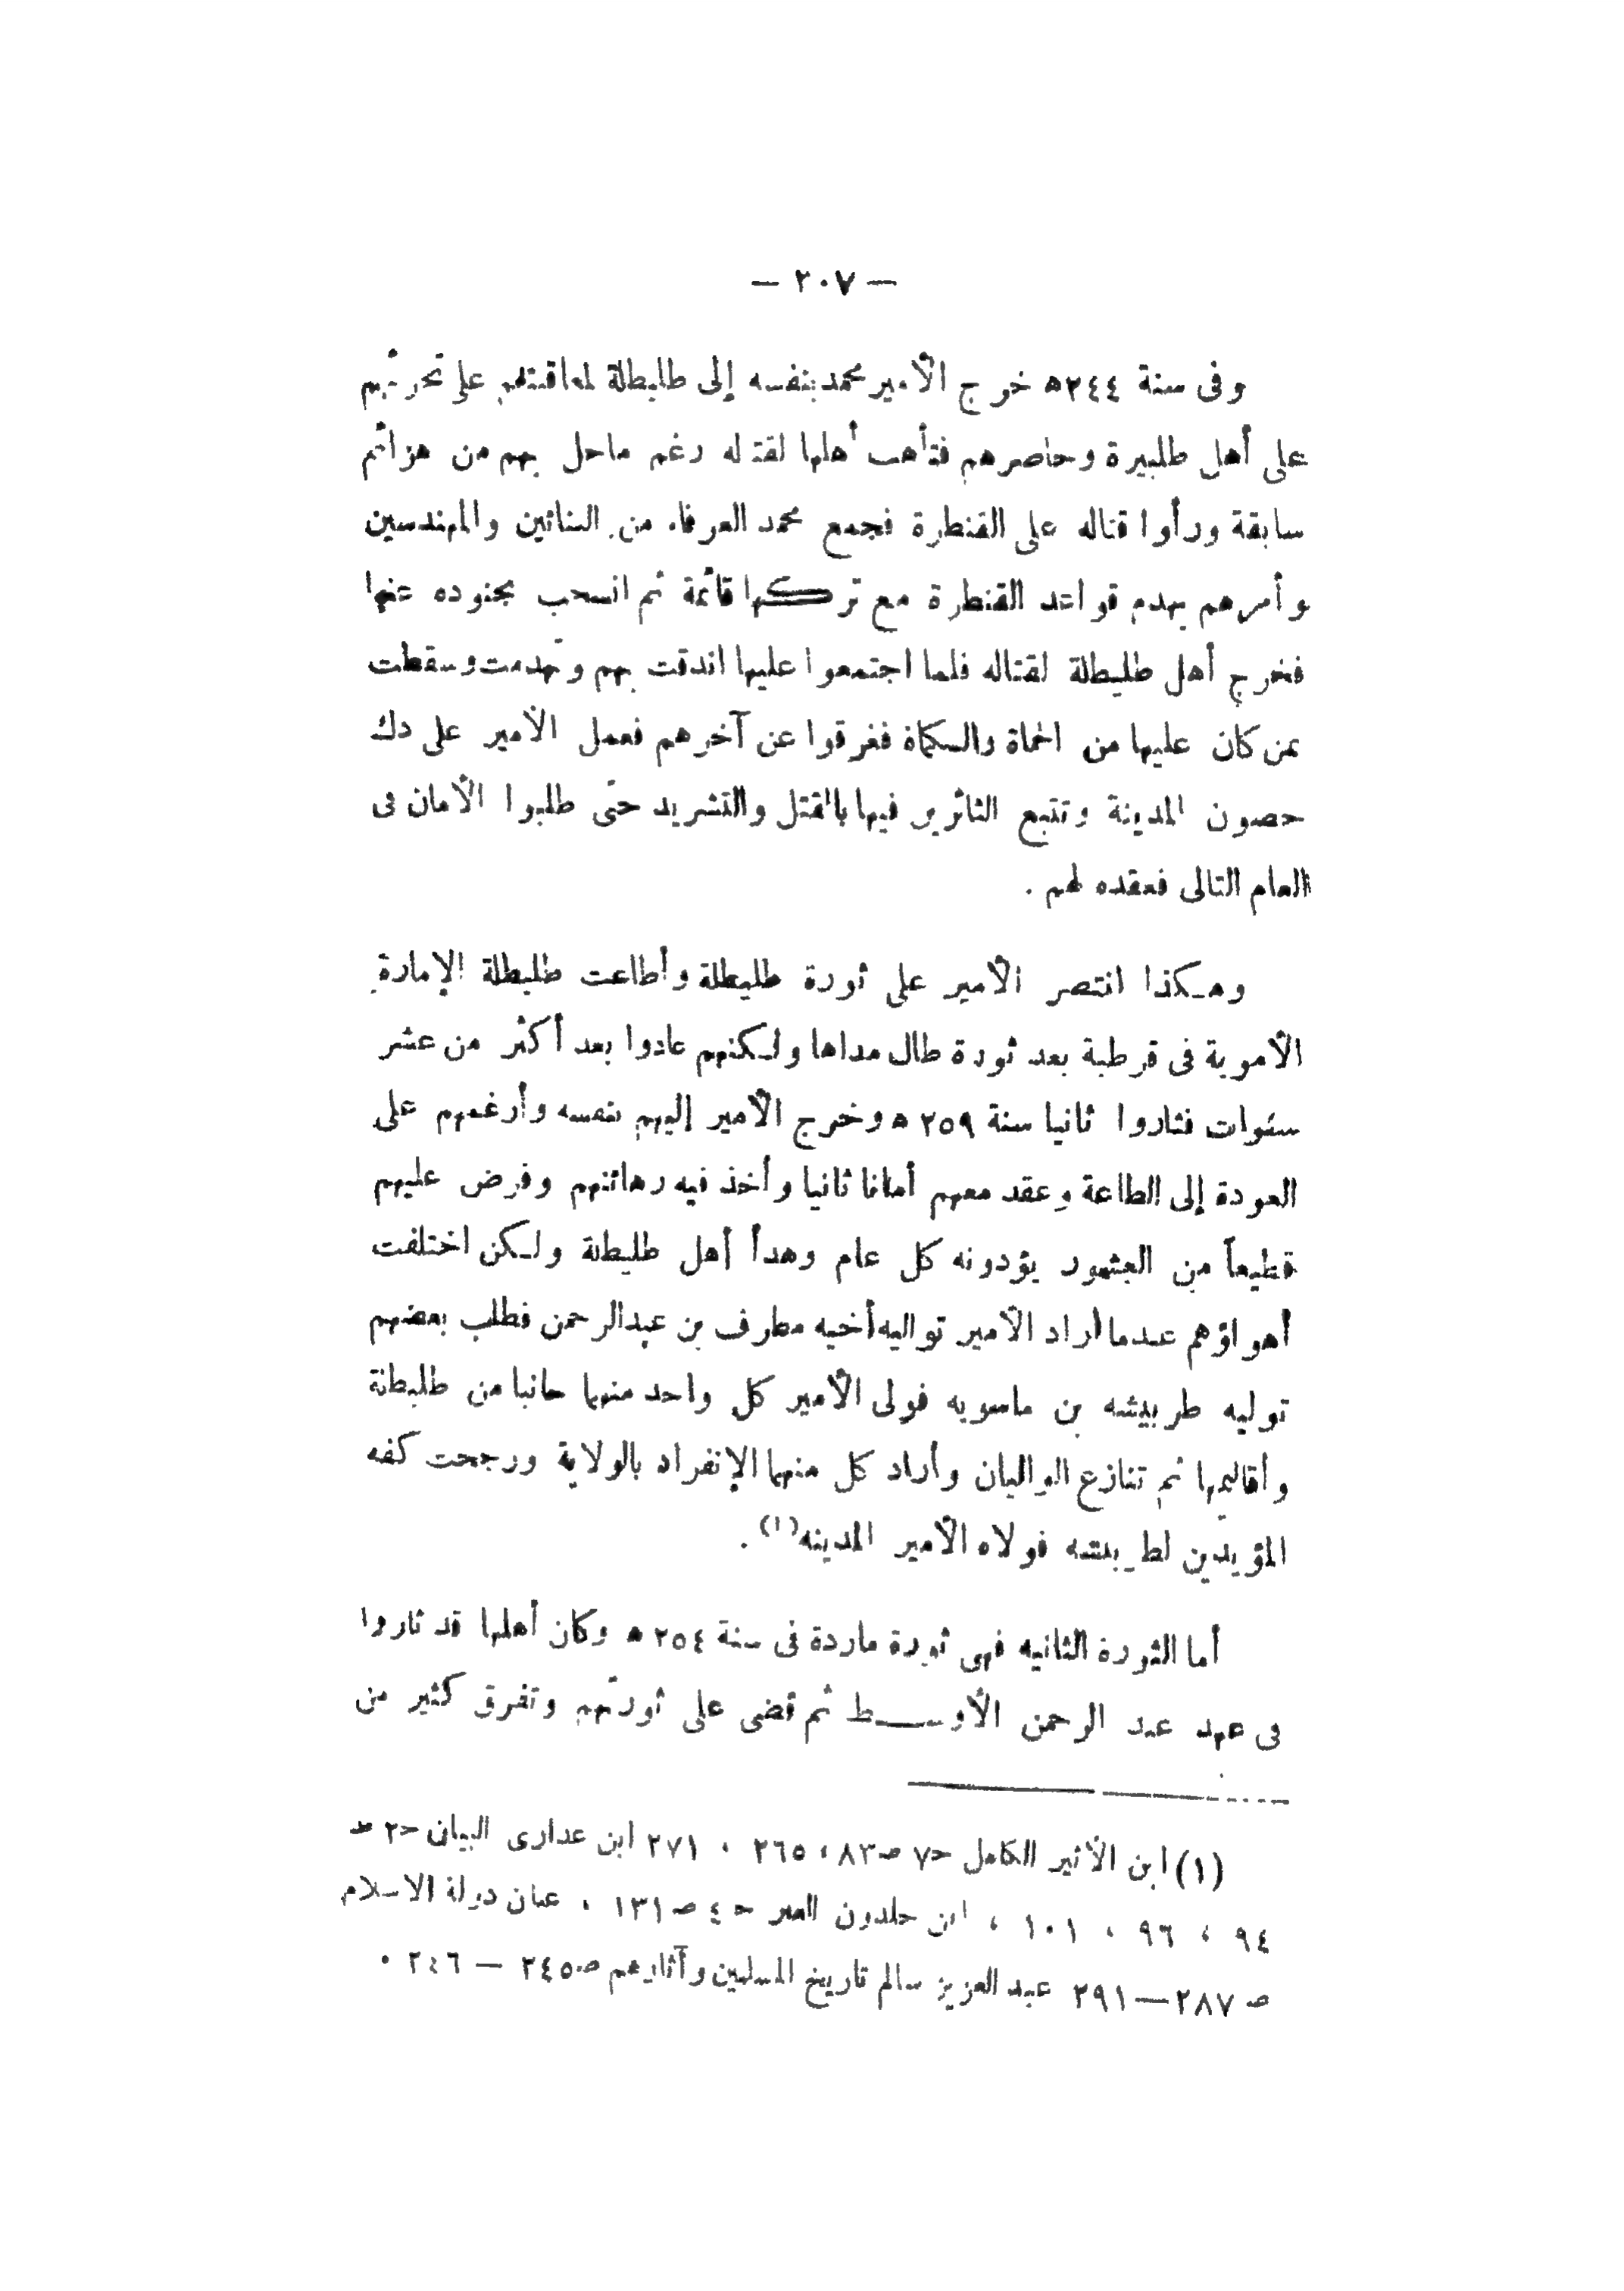 — ٢٠٧ —
وفى سنة ٢٤٤ﻫ خرج الأمير محمد بنفسه إلى طليطلة لمعاقبتهم على تحرشهم
على أهل طلبيرة وحاصرهم فتأهب أهلها لقتاله رغم ماحل بهم من هزائم
سابقة ورأوا قتاله على القنطرة فجمع محمد العرفاء من البنائين والمهندسين
وأمرهم بهدم قواعد القنطرة مع تركها قائمة ثم انسحب بجنوده عنها
فخرج أهل طليطلة لقتاله فلما اجتمعوا عليها اندقت بهم وتهدمت وسقطت
بمن كان عليها من الحماة والكماة فغرقوا عن آخرهم فعمل الأمير على دك
حصون المدينة وتتبع الثائرين فيها بالقتل والتشريد حتى طلبوا الأمان فى
العام التالى فعقده لهم .
وهكذا انتصر الأمير على ثورة طليطلة وأطاعت طليطلة الإمارة
الأموية فى قرطبة بعد ثورة طال مداها ولكنهم عادوا بعد أكثر من عشر
سنوات فثاروا ثانيا سنة ٢٥٩ ﻫ وخرج الأمير إليهم بنفسه وأرغمهم على
العودة إلى الطاعة وعقد معهم أمانا ثانيا وأخذ فيه رهائنهم وفرض عليهم
قطيعاً من العشور يؤدونه كل عام وهدأ أهل طليطلة ولكن اختلفت
أهواؤهم عندما أراد الأمير تواليه أخيه مطرف بن عبدالرحمن فطلب بعضهم
توليه طربيشه بن ماسويه فولى الأمير كل واحد منهما جانبا من طليطلة
وأقاليمها ثم تنازع الواليان وأراد كل منهما الإنفراد بالولاية ورجحت كفه
المؤيدين لطربيشه فولاه الأمير المدينه(١) .
أما الثورة الثانيه فهى ثورة ماردة فى سنة ٢٥٤ ﻫ وكان أهلها قد ثاروا
فى عهد عبد الرحمن الأوسط ثم قضى على ثورتهم وتفرق كثير من
(١) ابن الأثير الكامل ح٧ ص٨٣ ، ٢٦٥ ، ٢٧١ ابن عذارى البيان ح٢ ص
٩٤ ، ٩٦ ، ١٠١ ، ابن خلدون العبر ح ٤ ص ١٣١ ، عنان دولة الاسلام
ص ٢٨٧—٢٩١ عبد العزيز سالم تاريخ المسلمين وآثارهم ص ٢٤٥ — ٢٤٦ .